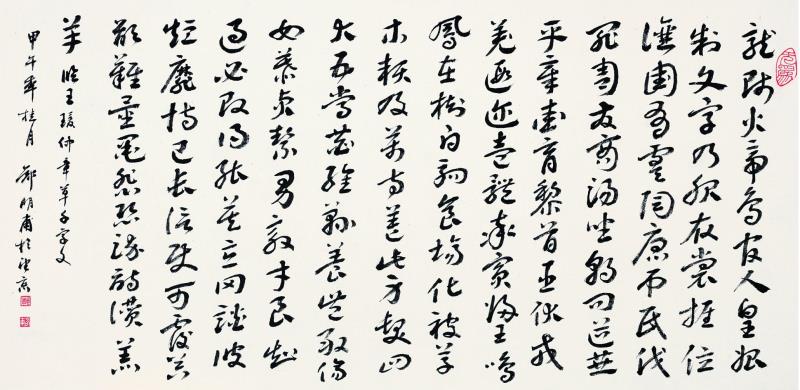 龍師火帝鳥官人皇始
制文字乃服衣裳推位
讓國有虞陶唐弔民伐
罪周發商湯坐朝問道垂
平章愛育黎首臣伏戎
羌遐邇壹體率賓歸王鳴
鳳在樹白駒食場化被草
木賴及萬方蓋此身髮四
大五常恭惟鞠養豈敢傷
女慕貞絜男效才良知
過必改得能莫忘罔談彼
短靡恃己長信使可覆器
欲難量墨悲絲染詩讚羔
羊 臨王瑗仲章草千字文
甲午年桂月 明甫於京